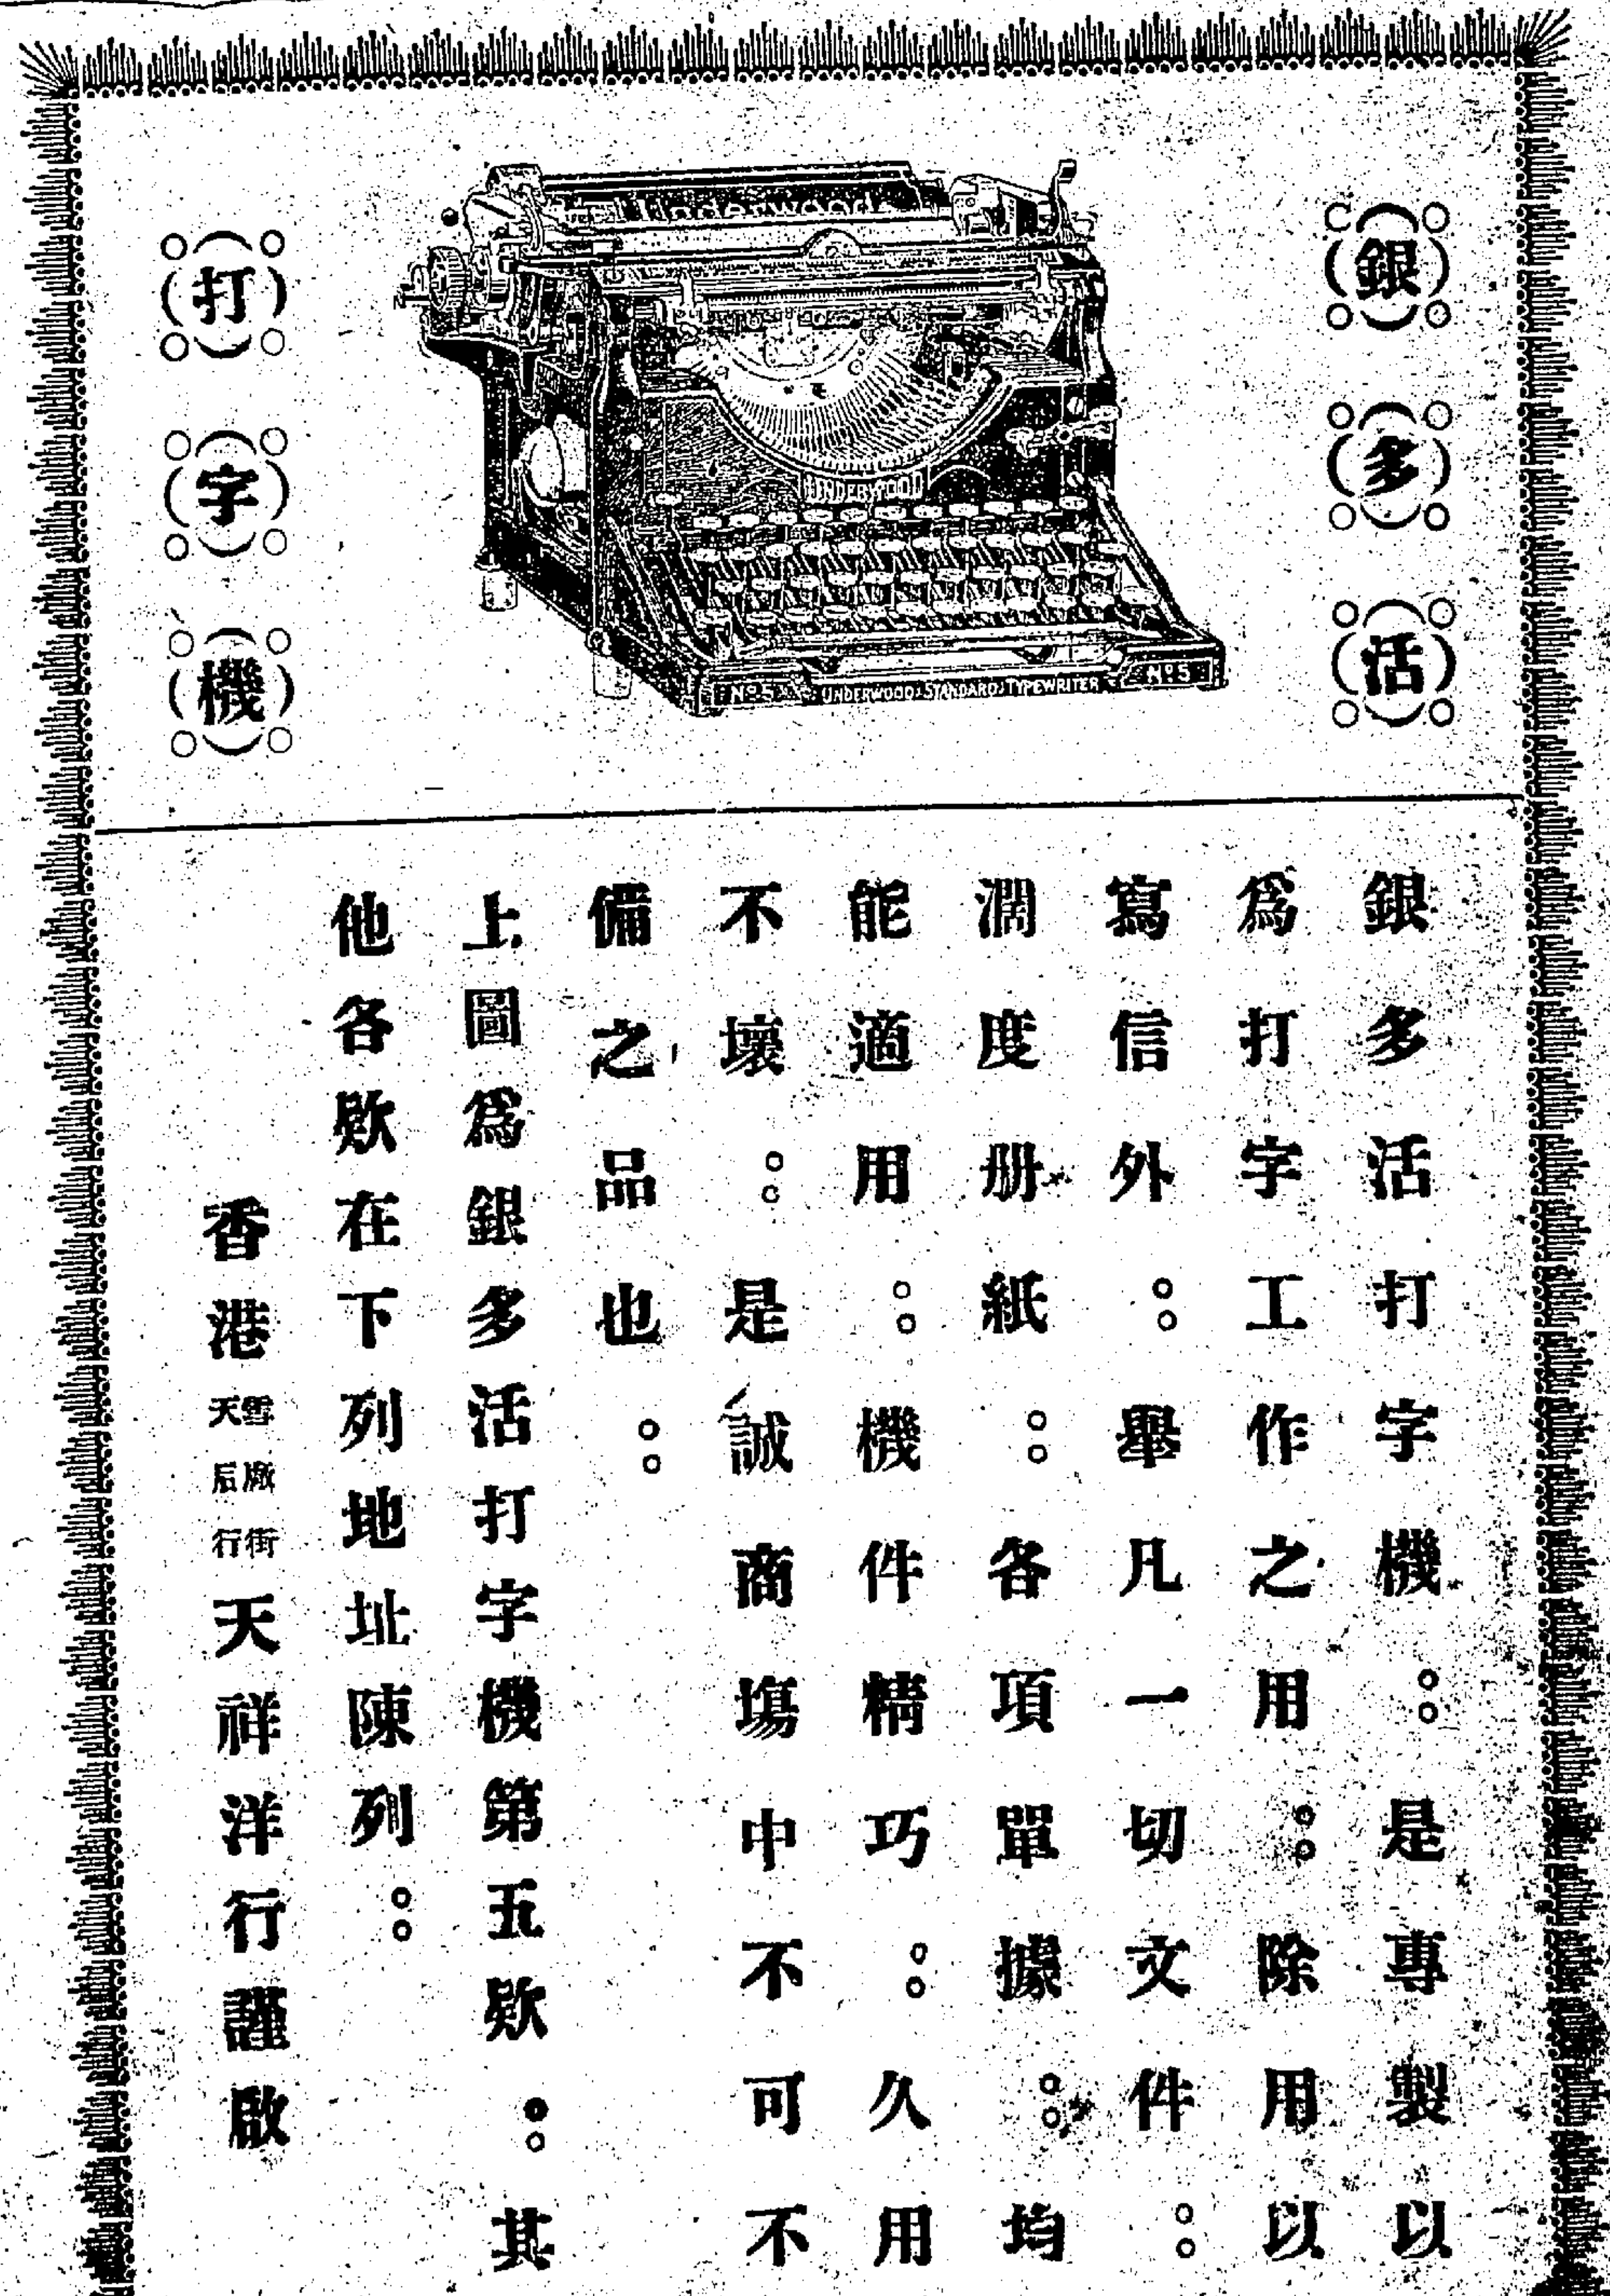 銀多活
打字機
Underwood
UNDERWOOD
Nº5 UNDERWOOD STANDARD TYPEWRITER Nº5
銀多活打字機。是專製以
爲打字工作之用。除用以
寫信外。舉凡一切文件。
濶度册紙。各項單據。均
能適用。機件精巧。久用
不壞。是誠商塲中不可不
備之品也。
上圖爲銀多活打字機第五欵。其
他各欵在下列地址陳列。
香港雪廠街天后行天祥洋行謹啟